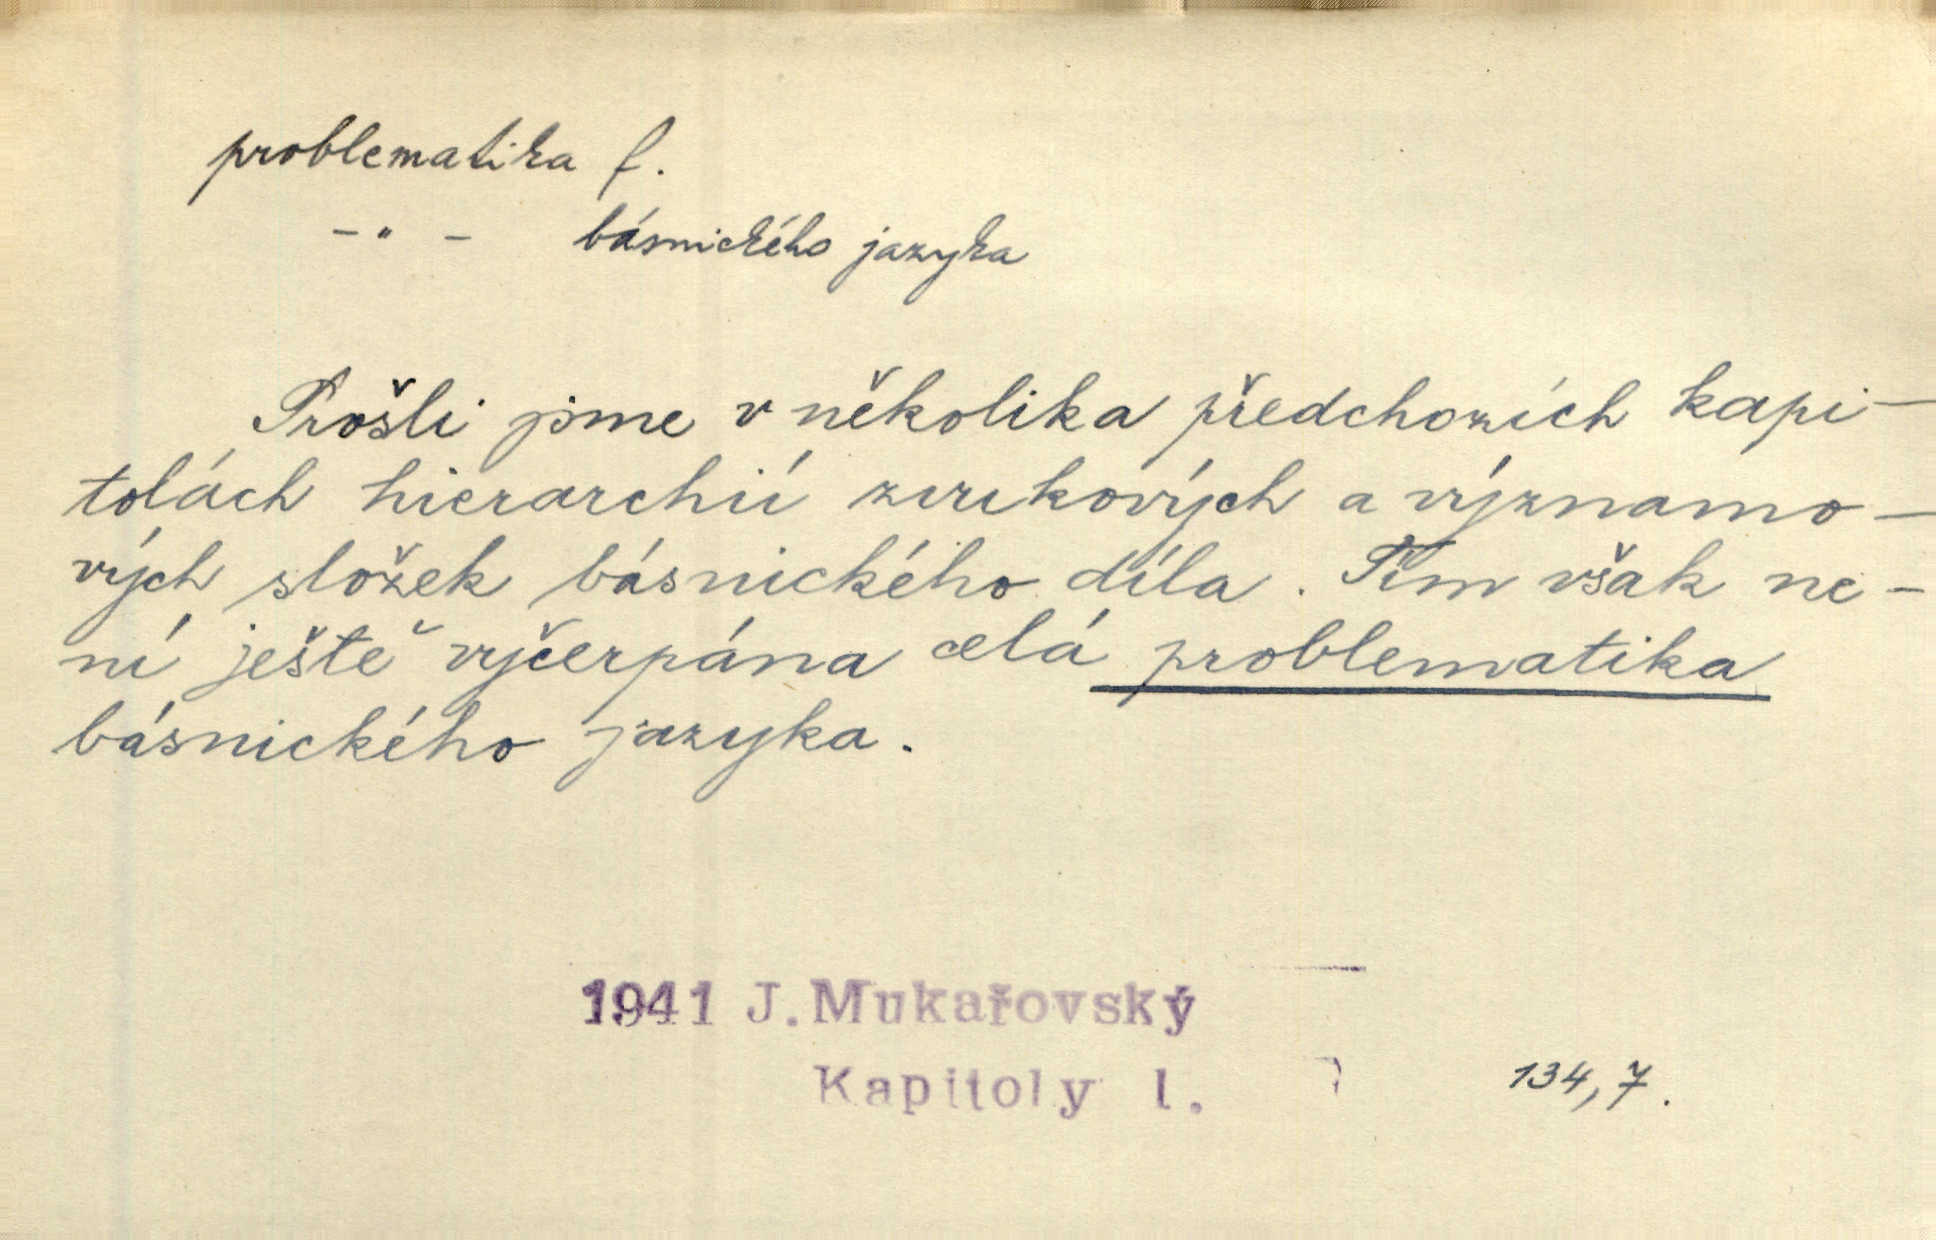 problematika f.
-"- básnického jazyka
Prošli jsme v několika předchozích kapi-
tolách hierarchií zvukových a významo-
vých složek básnického díla. Tím však ne-
ní ještě vyčerpána celá problematika
básnického jazyka.
1941 J.Mukařovský
Kapitoly I.
134,7.